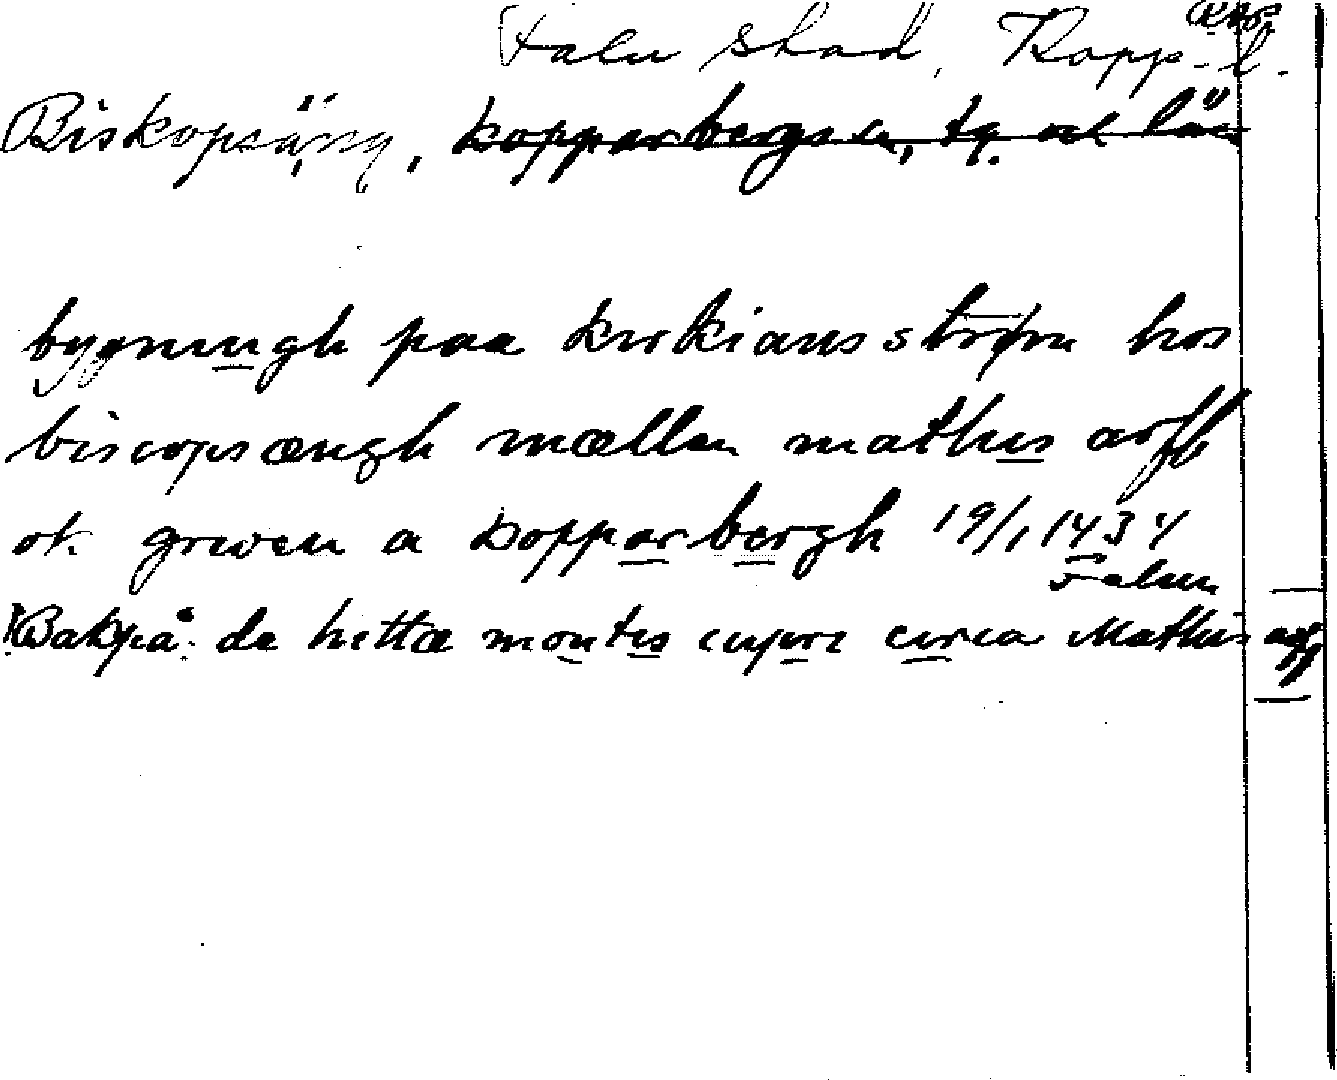 Falu stad, Kopp-l.
Biskopsäng, Kopparbergs sn, tg. ock län
bygningh paa kirkians strøm hos
biscopsængh mællen mathis arff
ok greven a kopparbergh 19/1 1434
Falun
Bakpå: de hitta montis cupri circa Mathis arff